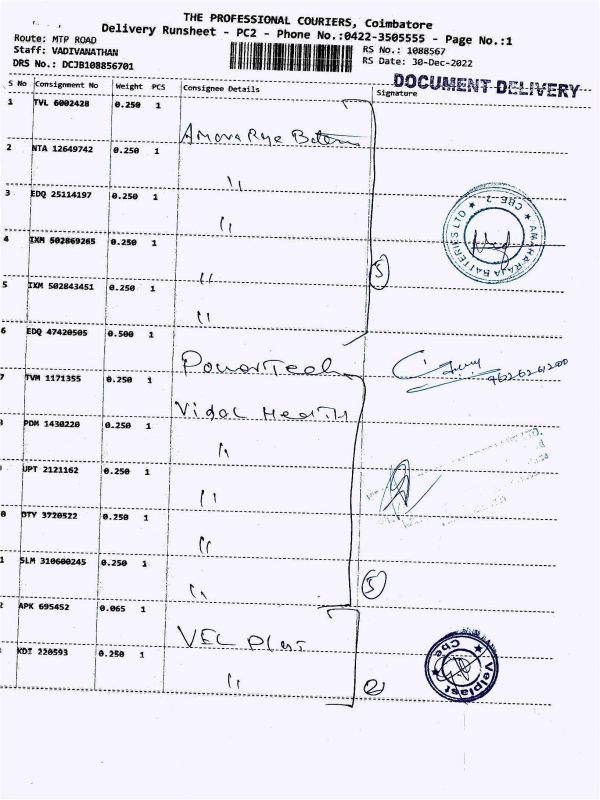 THE PROFESSIONAL COURIERS, Coimbatore
Delivery Runsheet - PC2 - Phone No.:0422-3505555 - Page No.:1
Route: MTP ROAD
RS No.: 1088567
Staff: VADIVANATHAN
RS Date: 30-Dec-2022
DRS No.: DCJB108856701
DOCUMENT DELIVERY
S No Consignment No Weight PCS Consignee Details Signature
1 TVL 6002428 0.250 1
2 NTA 12649742 0.250 1 "
3 EDQ 25114197 0.250 1 "
AMARA RAJA BATTERIES LTD ★ CBE-7 ★
4 IXM 502869265 0.250 1 "
5
5 IXM 502843451 0.250 1 "
6 EDQ 47420505 0.500 1 PowerTech
7 TVM 1171355 0.250 1 Vidal Health
PDM 1430220 0.250 1 "
UPT 2121162 0.250 1 "
0 DTY 3720522 0.250 1 "
1 SLM 310600245 0.250 1 "
5
2 APK 695452 0.065 1 VEL Plast
KDI 220593 0.250 1 "
2
Velplast ★ Cbe ★